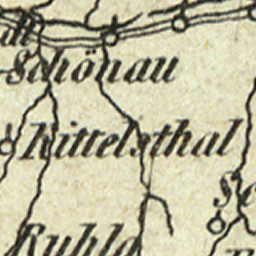 Schönau
Kittelsthal
Ruhla